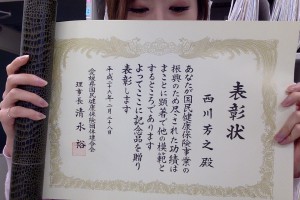 表彰状
西川芳之殿
あなたが国民健康保険事業の
振興のため尽された功績は
まことに顕著で他の模範と
するところであります
よってここに記念品を贈り
表彰します
平成二十八年二月二十九日
愛媛県国民健康保険団体連合会
理事長 清水裕